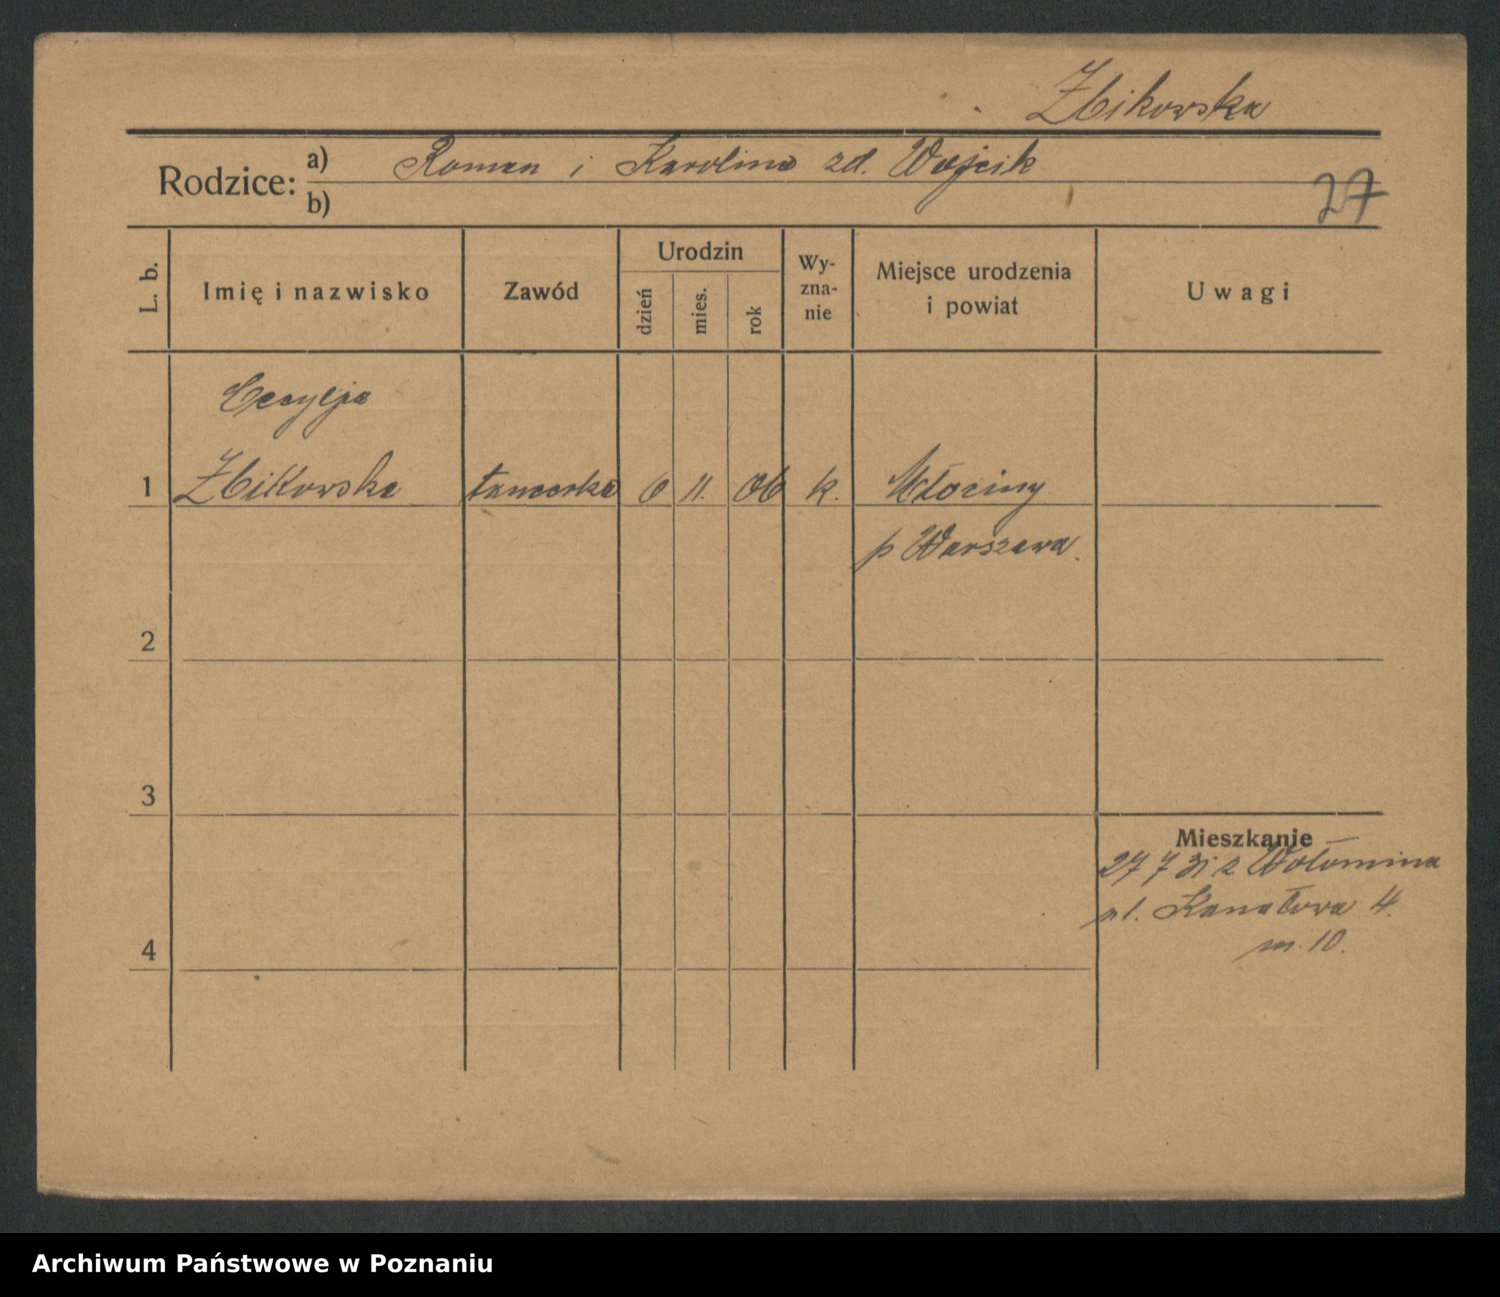 Zbikowska
Rodzice: a) Roman i Karolina zd. Wojcik
b)
27
L. b.
Imię i nazwisko
Zawód
Urodzin
dzień
mies.
rok
Wy-
zna-
nie
Miejsce urodzenia
i powiat
Uwagi
Cecylja
1 Zbikowska tancerka 6 11. 06 k. Młociny
p Warszawa.
2
3
Mieszkanie
27 7 31 z Wołomina
ul. Kanałowa 4.
m. 10.
4
Archiwum Państwowe w Poznaniu